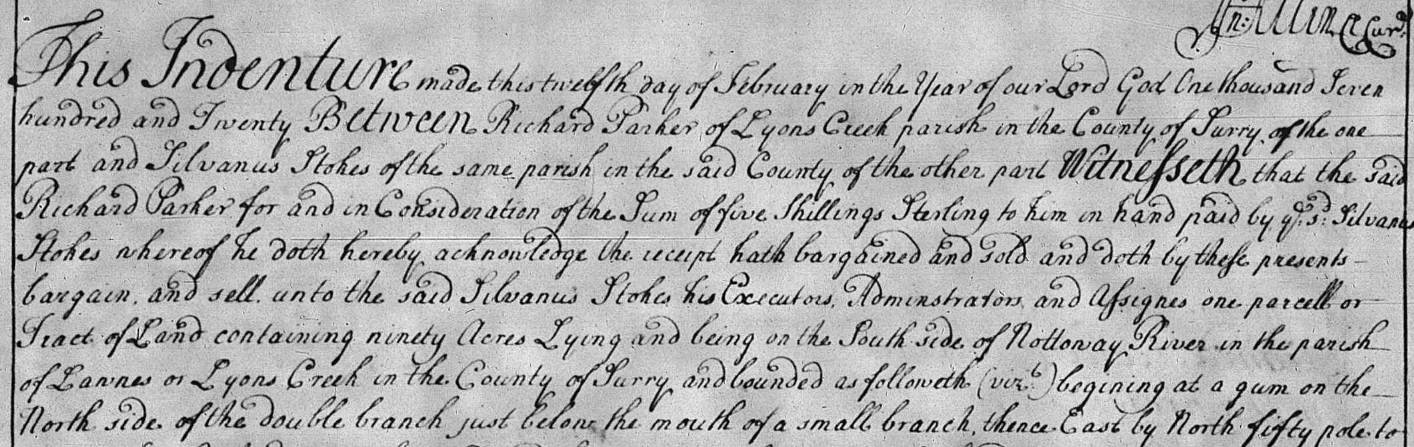 Jn: Allin Cl Cur.
This Indenture made this twelfth day of February in the Year of our Lord God One thousand Seven
hundred and Twenty Between Richard Parker of Lyons Creek parish in the County of Surry of the one
part and Silvanus Stokes of the same parish in the said County of the other part Witnesseth that the said
Richard Parker for and in Consideration of the Sum of five Shillings Sterling to him in hand paid by ye. sd: Silvanus
Stokes whereof he doth hereby acknowledge the receipt hath bargained and sold and doth by these presents
bargain and sell unto the said Silvanus Stokes his Executors, Adminstrators and Assignes one parcell or
Tract of Land containing ninety Acres Lying and being on the South side of Nottoway River in the parish
of Lawnes or Lyons Creek in the County of Surry and bounded as followeth (vizt.) begining at a gum on the
North side of the double branch just below the mouth of a small branch, thence East by North fifty pole to